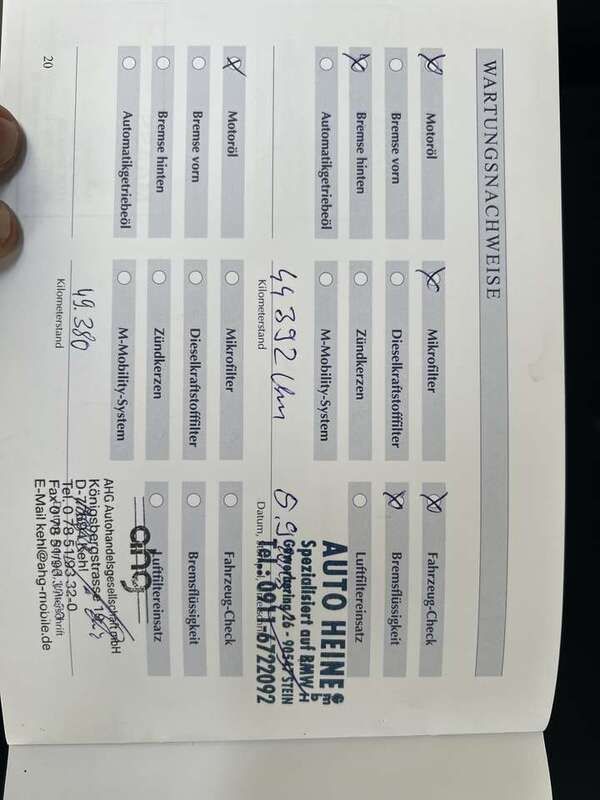 WARTUNGSNACHWEISE
Motoröl
Mikrofilter
Fahrzeug-Check
Bremse vorn
Dieselkraftstofffilter
Bremsflüssigkeit
Bremse hinten
Zündkerzen
Luftfiltereinsatz
Automatikgetriebeöl
M-Mobility-System
AUTO HEINE GmbH
Spezialisiert auf BMW
- 90547 STEIN
Tel.: 0911-6722092
44 392 km
Kilometerstand
Datum,
Motoröl
Mikrofilter
Fahrzeug-Check
Bremse vorn
Dieselkraftstofffilter
Bremsflüssigkeit
Bremse hinten
Zündkerzen
Luftfiltereinsatz
Automatikgetriebeöl
M-Mobility-System
ahg
AHG Autohandelsgesellschaft mbH
Königsbergstrasse
Kehl
Tel. 0 78 51/93 32-0
Fax 0 78 51/93
E-Mail kehl@ahg-mobile.de
49.380
Kilometerstand
20